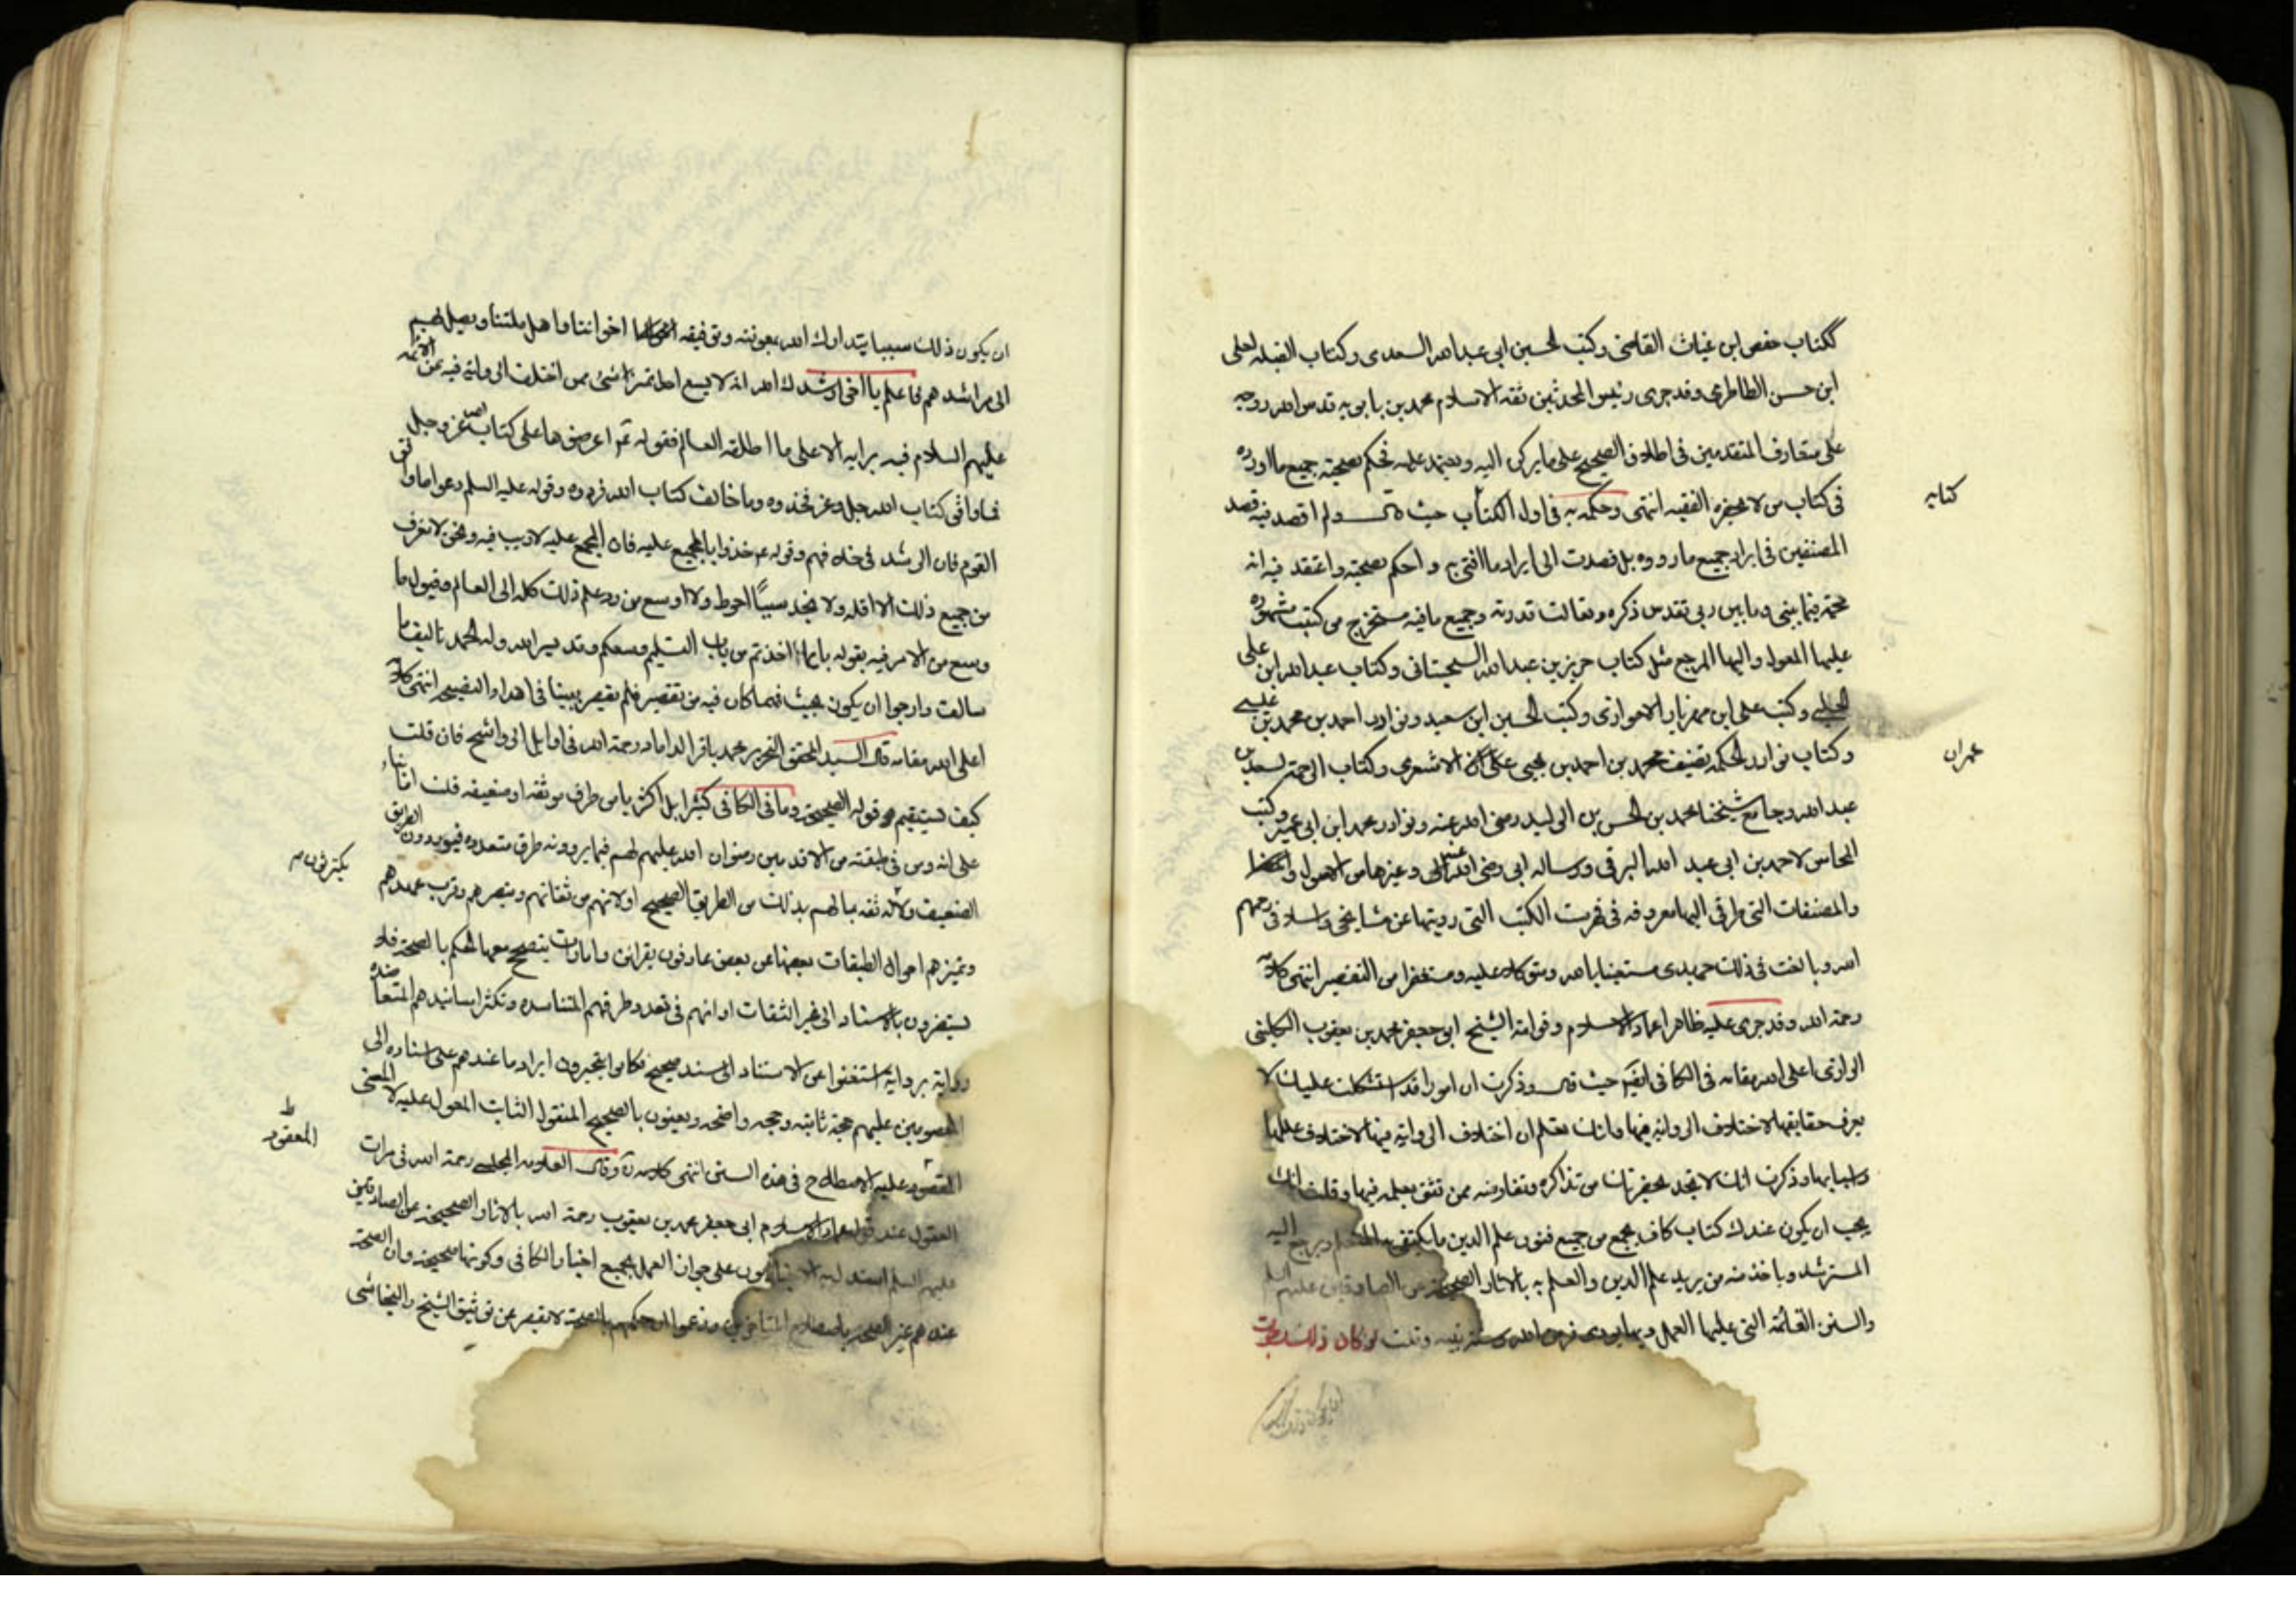 ككتاب حفص ابن غياث القاضى وكتب الحسين ابى عبد الله السعدى وكتاب القبله لعلى
ابن حسن الطاطرى وقد جرى رئيس المحدثين ثقة الاسلام محمد بن بابويه قدس الله روحه
على متعارف المتقدمين فى اطلاق الصحيح على ما يركن اليه ويعتمد عليه فحكم بصحة جميع ما اورده
فى كتاب من لا يحضره الفقيه انتهى وحكمه به فى اول الكتاب حيث قال ولم اقصد فيه قصد
كتابه
المصنفين فى ايراد جميع ما رووه بل قصدت الى ايراد ما افتى به و احكم بصحته واعتقد فيه انه
حجة فيما بينى وما بين ربى تقدس ذكره وتعالت قدرته وجميع ما فيه مستخرج من كتب مشهوره
عليها المعول واليها المرجع مثل كتاب حريز بن عبد الله السجستانى وكتاب عبد الله ابن على
الحلبى وكتب على ابن مهزيار الاهوازى وكتب الحسين ابن سعيد ونوادر احمد بن محمد بن عيسى
وكتاب نوادر الحكمه تصنيف محمد بن احمد بن يحيى الاشعرى وكتاب الرحمة لسعد بن
عمران
عبد الله وجامع شيخنا محمد بن الحسن بن الوليد رضى الله عنه ونوادر محمد ابن ابى عمير وكتب
المحاسن لاحمد بن ابى عبد الله البرقى ورساله ابى رضى الله عنه الى وغيرها من الاصول
والمصنفات التى طرقى اليها معروفه فى فهرست الكتب التى رويتها عن مشايخى واسلافى رحمهم
الله وبالغت فى ذلك جهدى مستعينا بالله ومتوكلا عليه ومستغفرا من التقصير انتهى كلامه
رحمة الله وقد جرى عليه ظاهرا عماد الاسلام وفوامه الشيخ ابو جعفر محمد بن يعقوب الكلينى
الرازى اعلى الله مقامه فى الكافى ايضا حيث قال وذكرت ان امورا قد استشكلت عليك لا
يعرف حقايقها لاختلاف الرواية فيها وانك تعلم ان اختلاف الرواية فيها لاختلاف عللها
واسبابها وذكرت انك لا تجد بحضرتك من تذاكره وتفاوضه ممن تثق بعلمه فيها وقلت انك
يجب ان يكون عندك كتاب كاف يجمع من جميع فنون علم الدين ما يكتفى به المتعلم ويرجع اليه
المسترشد وياخذ منه من يريد علم الدين والعلم به بالاثار الصحيحة عن الصادقين عليهم السلم
والسنن القائمة التى عليها العمل وبها يودى فرض الله وسنة نبيه وقلت لو كان ذلك رجوت
ان يكون ذلك
ان يكون ذلك سببا يتدارك الله بعونته وتوفيقه اخواننا واهل ملتنا ويصل بهم
الى مراشدهم فاعلم يا اخى ارشدك الله انه لا يسع احدا تميز شئ مما اختلف الرواية فيه عن الائمه
عليهم السلام فيه برايه الا على ما اطلقه العالم فقوله ع اعرضوها على كتاب الله عز وجل
فما وافى كتاب الله جل وعز فخذوه وما خالف كتاب الله فردوه وقوله عليه السلم دعوا ما وافق
القوم فان الرشد فى خلافهم وقوله ع خذوا بالمجمع عليه فان المجمع عليه لا ريب فيه ونحن لا نعرف
من جميع ذلك الا اقله ولا نجد سبيا احوط ولا اوسع من رد علم ذلك كله الى العالم وقبول ما
وسع من الامر فيه بقوله بايما اخذتم من باب التسليم وسعكم وقد يسر الله وله الحمد تاليف ما
سالت وارجوا ان يكون بحيث فمهما كان فيه من تقصير فلم تقصر نيتنا فى اهداء النصيحه انتهى كلامه
اعلى الله مقامه قال السيد المحقق النحرير محمد باقر الداماد رحمة الله فى اوايل الرواشح فان قلت
كيف تستقيم قوله الصحيحة وما فى الكافى كثيرا بل اكثريا من طرف موثقه او ضعيفه قلت
على انه ومن فى طبقته من الاقدمين رضوان الله عليهم لهم فيما يروونه طرق متعدده فيوردون الطريق
يكترثون
الضعيف ولا ثقه بما لهم بذلك من الطريق الصحيح او لانهم من ثقاتهم وتبصرهم وقرب عهدهم
وتميزهم احوال الطبقات بعضها عن بعض عارفون بقرائن وامارات يتصحح معها الحكم بالصحة فلا
يستضرون بالاستناد الى غير الثقات او انهم فى تعدد طرقهم المتناسده وتكثر اسانيدهم المتعاضده
رواية برواية استغنوا عن الاستناد الى سند صحيح فكانوا يتخيرون ايراد ما عندهم على اسناده الى
المعصومين عليهم حجة ثابته وحجه واضحه ويعنون بالصحيح المنقول الثابت المعول عليه لا المعنى
المقصور عليه الاصطلاح فى هذه السنن انتهى كلامه وقال العلامه المجلسى رحمة الله فى مرات
المعقود
العقول عند قول عماد الاسلام ابى جعفر محمد بن يعقوب رحمة الله بالاثار الصحيحة عن الصادقين
عليهم السلم استدل به على جواز العمل بجميع اخبار الكافى وكونها صحيحة وان الصحة
عندهم غير الصحة باصطلاح المتاخرين وزعموا ان حكمهم بالصحة لا يقصر عن توثيق الشيخ والنجاشى